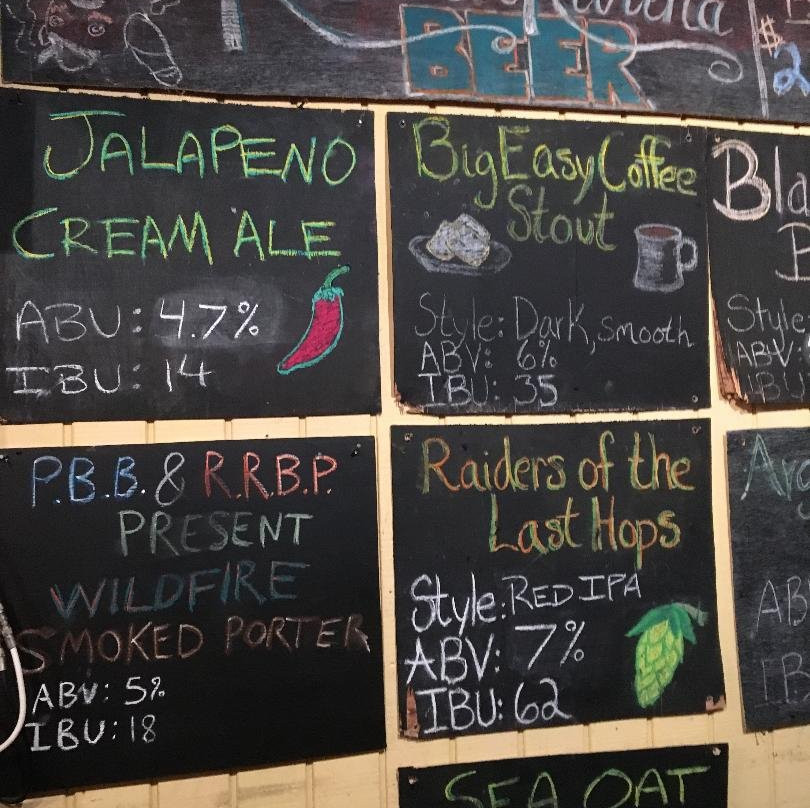 BEER
$
2
JALAPENO
CREAM ALE
ABV: 4.7%
IBU: 14
Big Easy Coffee
Stout
Style: Dark, smooth
ABV: 6%
IBU: 35
Style
ABV:
IBU
P.B.B. & R.R.B.P.
PRESENT
WILDFIRE
SMOKED PORTER
ABV: 5%
IBU: 18
Raiders of the
Last Hops
Style: RED IPA
ABV: 7%
IBU: 62
SEA OAT